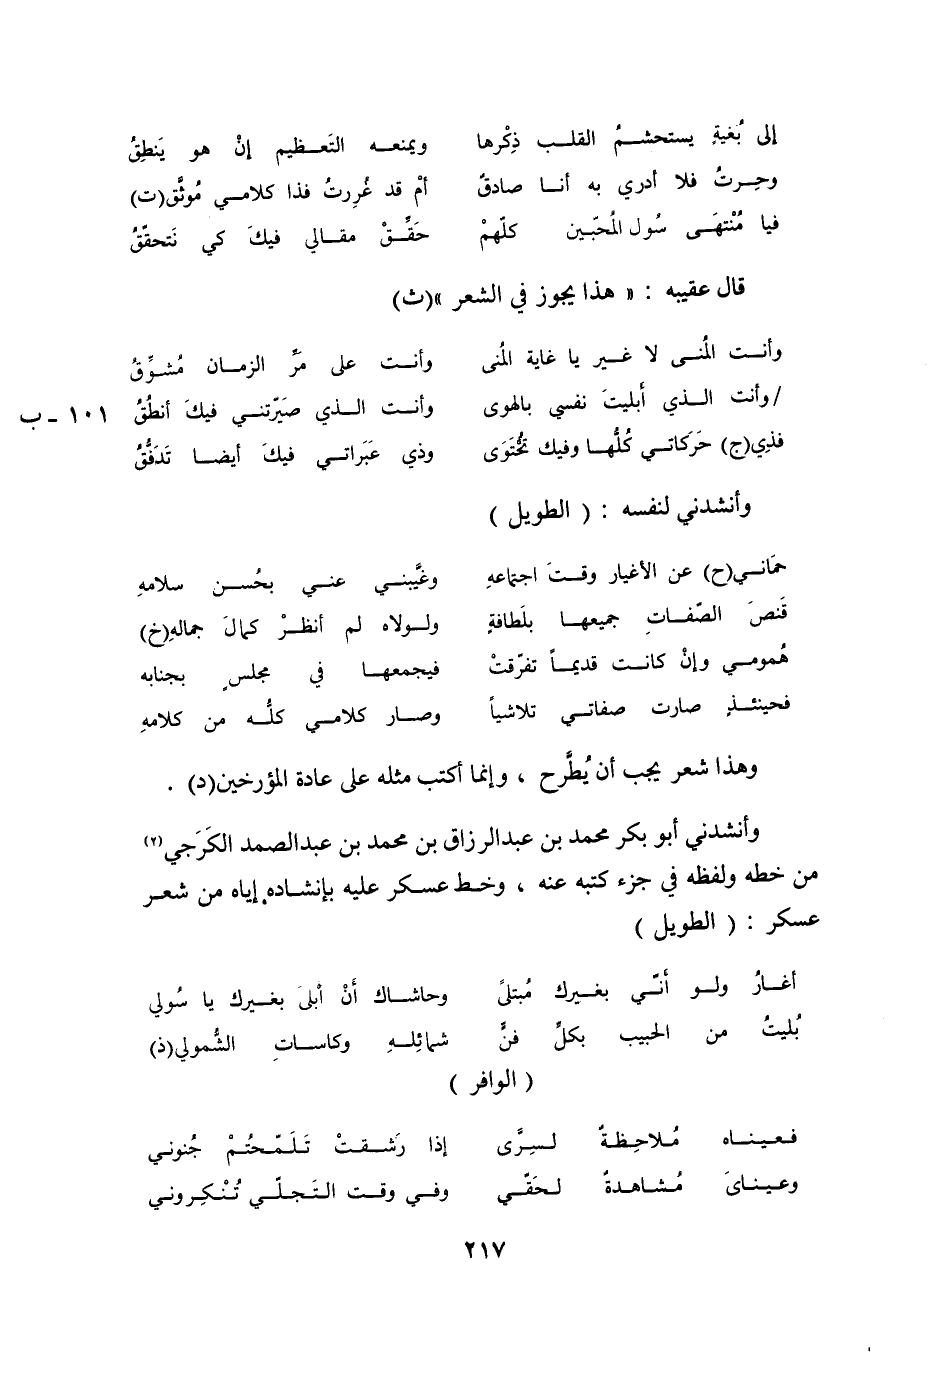 إلى بُغيةٍ يستحشمُ القلب ذِكْرها ويمنعه التَعظيم إنْ هو يَنطِقُ
وحِرتُ فلا أدري به أنا صادقٌ أمْ قد غُررتُ فذا كلامي مُوثَّق(ت)
فيا مُنْتهَى سُول المُحبّين كلّهمْ حَقِّقْ مقالي فيكَ كي نَتحقّقُ
قال عقيبه : « هذا يجوز في الشعر »(ث)
وأنت المُنى لا غير يا غاية المُنى وأنت على مَرِّ الزمان مُشوِّقُ
/وأنت الذي أبليتَ نفسي بالهوى وأنت الذي صَيّرتني فيكَ أنطُقُ ١٠١ - ب
فذِي(ج) حَركاتي كُلُّها وفيك تُحْتَوَى وذي عَبَراتي فيكَ أيضا تَدَفُّقُ
وأنشدني لنفسه : ( الطويل )
حمَاني(ح) عن الأغيار وقتَ اجتماعهِ وغيَّبني عني بحُسن سلامهِ
قَنصَ الصّفاتِ جميعها بلَطافةٍ ولولاه لم أنظرْ كمالَ جمالهِ(خ)
هُمومي وإنْ كانت قديماً تفرّقتْ فيجمعها في مجلسٍ بجنابه
فحينئذٍ صارت صفاتي تلاشياً وصار كلامي كلُّه من كلامهِ
وهذا شعر يجب أن يُطَّرح ، وإنما أكتب مثله على عادة المؤرخين(د) .
وأنشدني أبو بكر محمد بن عبدالرزاق بن محمد بن عبدالصمد الكَرَجي(٢)
من خطه ولفظه في جزء كتبه عنه ، وخط عسكر عليه بإنشاده إياه من شعر
عسكر : ( الطويل )
أغارُ ولو أنّي بغيرك مُبتلىً وحاشاك أنْ أبلىَ بغيرك يا سُولي
بُليتُ من الحبيب بكلِّ فنًّ شمائلِهِ وكاساتِ الشُّمولي(ذ)
( الوافر )
فعيناه مُلاحِظةٌ لسِرَّى إذا رَشقتْ تَلَمّحتُمْ جُنوني
وعيناىَ مُشاهدةٌ لحَقّي وفي وقت التَجلّي تُنْكِروني
٢١٧